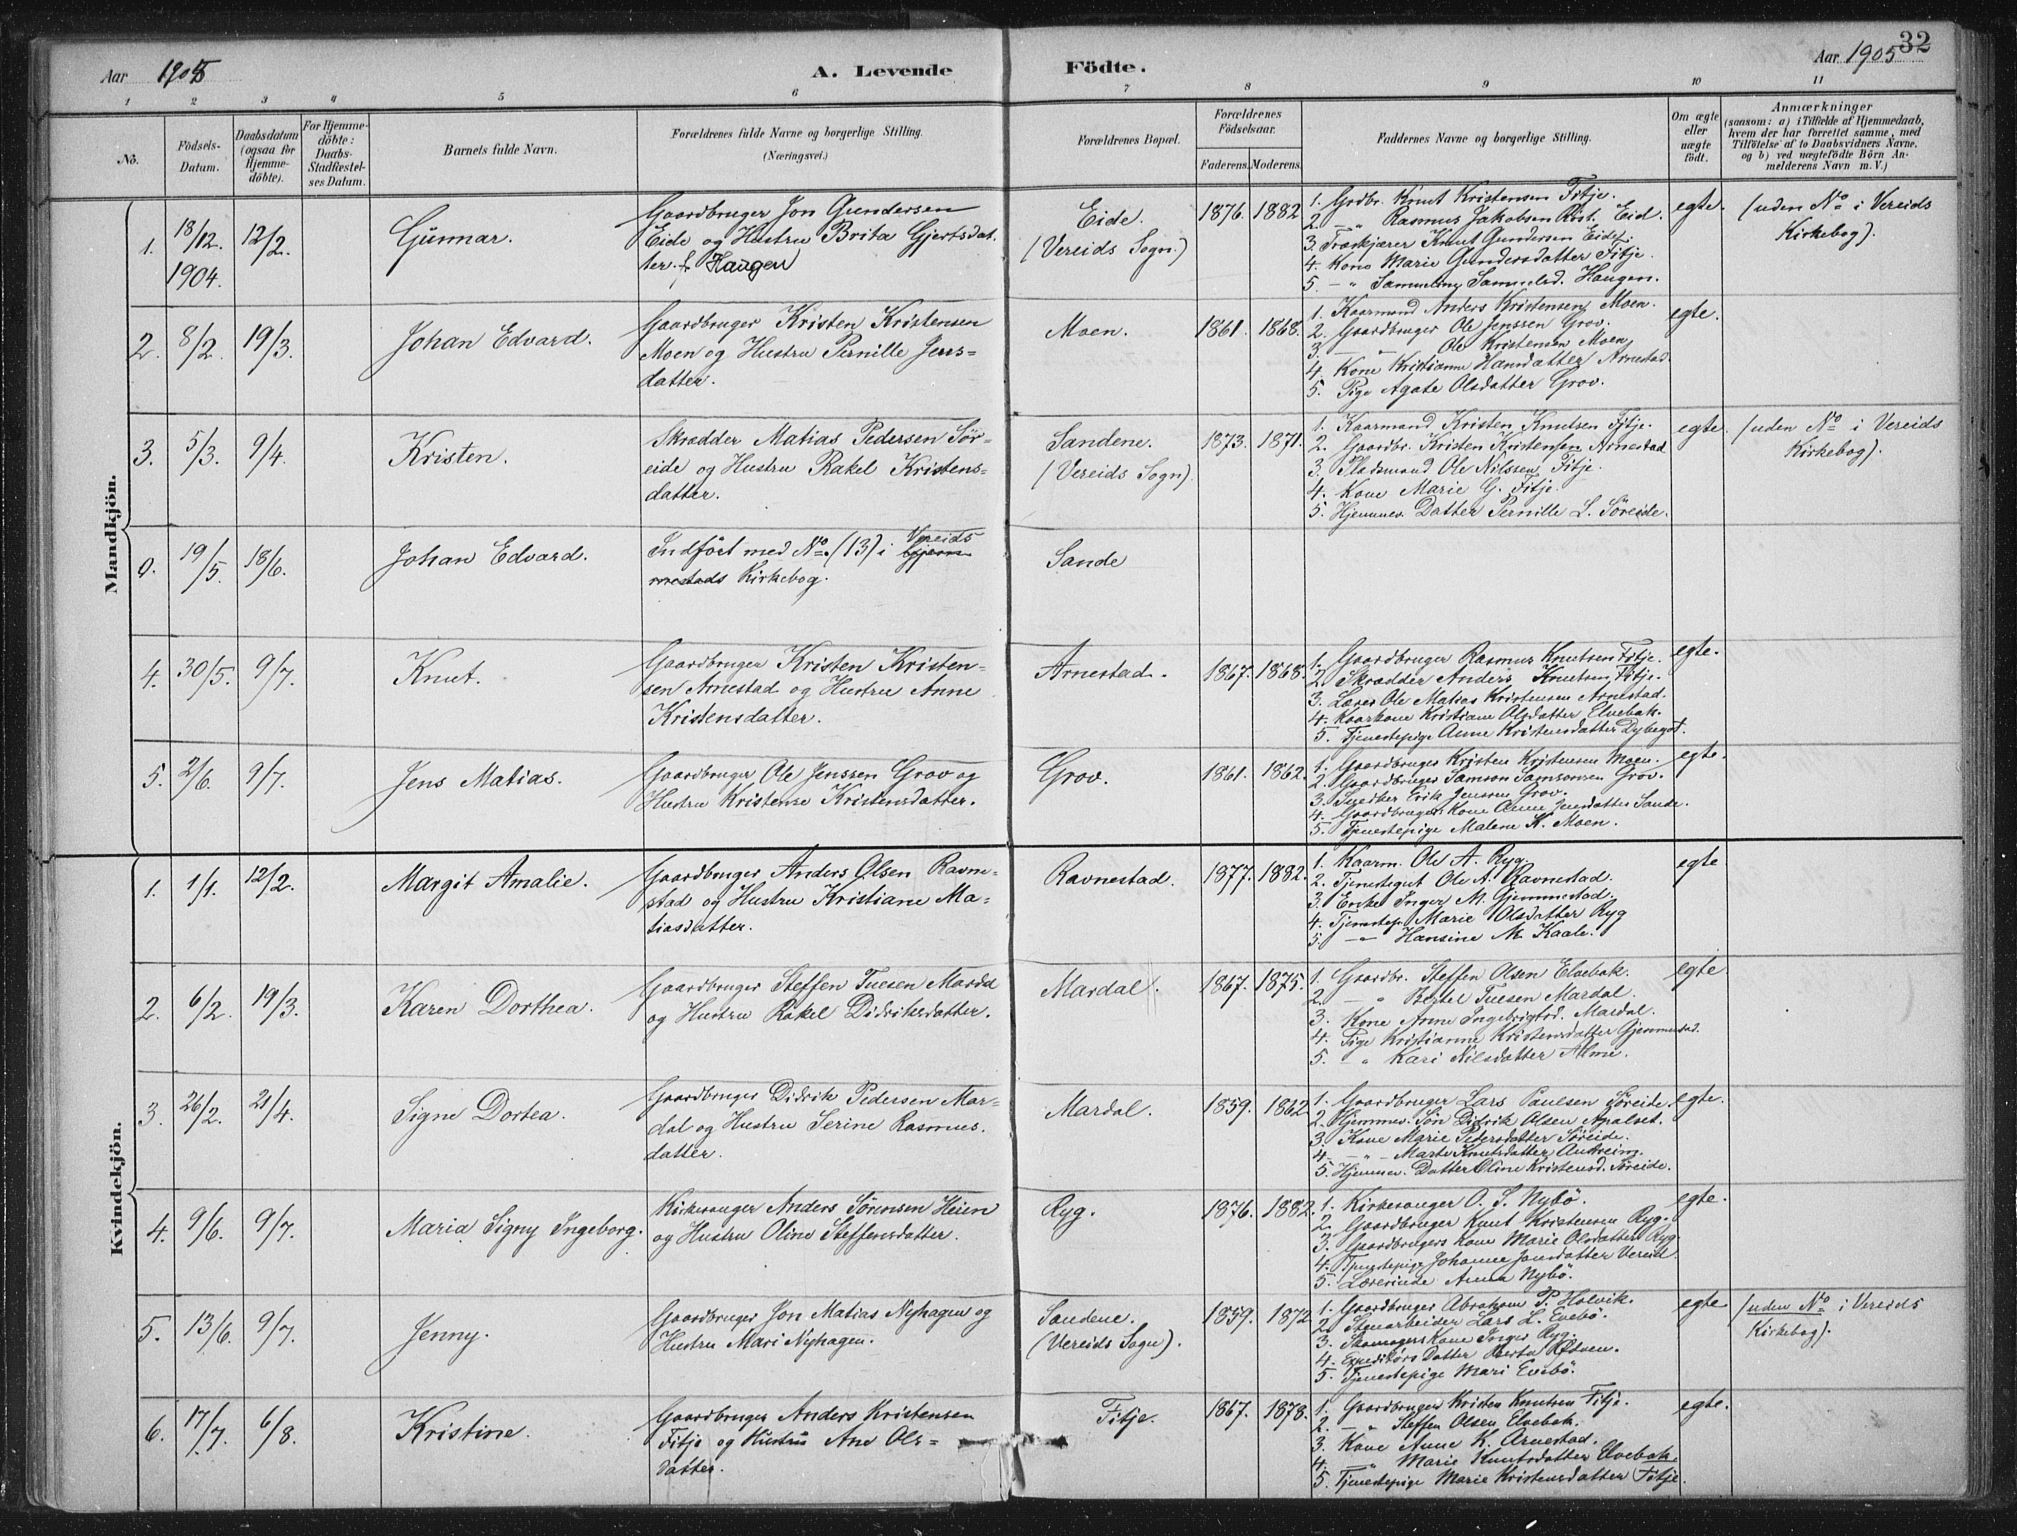 32
Aar 1905
A. Levende Födte.
Aar 1905
1 2 3 4 5 6 7 8 9 10 11
No.
Födsels-Datum.
Daabsdatum (ogsaa for Hjemmedöbte).
For Hjemmedöbte: Daabs-Stadfæstelses Datum.
Barnets fulde Navn.
Forældrenes fulde Navne og borgerlige Stilling.
(Næringsvei.)
Forældrenes Bopæl.
Forældrenes Födselsaar.
Faderens. Moderens.
Faddernes Navne og borgerlige Stilling.
Om ægte eller uægte födt.
Anmærkninger
(saasom: a) i Tilfælde af Hjemmedaab,
hvem der har forrettet samme, med
Tilföielse af to Daabsvidners Navne,
og b) ved uægtefödte Börn Anmelderens Navn m. V.)
Mandkjön.
1. 18/12. 1904. 12/2. Gunnar.
Gaardbruger Jon Gundersen
Eide og Hustru Brita Gjertsdat-
ter. f. Haugen
Eide.
(Vereids Sogn)
1876. 1882
1. Grdbr. Knut Kristensen Fitje.
2. " Rasmus Jakobsen Rist. Eid.
3. Knut Gundersen Eide.
4. Kone Marie Gundersdatter Fitje.
5. — " Samueline Samuelsd. Haugen.
egte.
(uden No i Vereids
Kirkebog).
2. 8/2. 19/3. Johan Edvard.
Gaardbruger Kristen Kristensen
Moen og Hustru Pernille Jens-
datter.
Moen.
1861. 1868.
1. Kaarmand Anders Kristensen Moen.
2. Gaardbruger Ole Jenssen Grov.
3. — " Ole Kristensen Moen
4. Kone Kristianne Hansdatter Arnestad.
5. Pige Agate Olsdatter Grov.
egte.
3. 5/3. 9/4. Kristen.
Skrædder Matias Pedersen Sør-
eide og Hustru Rakel Kristens-
datter.
Sandene.
(Vereids Sogn).
1873. 1871.
1. Kaarmand Kristen Knutsen Fitje.
2. Gaardbr. Kristen Kristensen Arnestad
3. Pladsmand Ole Nilssen Fitje.
4. Kone Marie G. Fitje.
5. Hjemmev. Datter Pernille L. Söreide.
egte.
(uden No i Vereids
Kirkebog).
0. 19/5. 18/6. Johan Edvard.
Indført med No. (13) i Vereids Gjem-
mestads Kirkebog.
Sande
4. 30/5. 9/7. Knut.
Gaardbruger Kristen Kristen-
sen Arnestad og Hustru Anne
Kristensdatter.
Arnestad.
1867. 1868.
1. Gaardbruger Rasmus Knutsen Fitje.
2. Skrædder Anders Knutsen Fitje.
3. Lærer Ole Matias Kristensen Arnestad.
4. Kaarkone Kristiane Olsdatter Elvebak.
5. Tjenestepige Anne Kristensdatter
egte.
5. 2/6. 9/7. Jens Matias.
Gaardbruger Ole Jenssen Grov og
Hustru Kristense Kristensdatter.
Grov.
1861. 1862.
1. Gaardbruger Kristen Kristensen Moen.
2. Gaardbruger Samson Samsonsen Grov.
3. Snedker Erik Jensen Grov.
4. Gaardbrugers Kone Anne Jensdatter Sande.
5. Tjenestepige Malene K. Moen.
egte.
Kvindekjön.
1. 1/1. 12/2. Margit Amalie.
Gaardbruger Anders Olsen Ravne-
stad og Hustru Kristiane Ma-
tiasdatter.
Ravnestad.
1877. 1882.
1. Kaarm. Ole A. Ryg.
2. Tjenestegut Ole A. Ravnestad.
3. Enke Inger M. Gjemmestad.
4. Tjenestep. Marie Olsdatter Ryg
5. — " Hansine M. Kaale.
egte
2. 6/2. 19/3. Karen Dorthea.
Gaardbruger Steffen Tuesen Mardal
og Hustru Rakel Didriksdatter.
Mardal.
1867. 1875.
1. Gaardbr. Steffen Olsen Elvebak.
2. — " Bertel Tuesen Mardal.
3. Kone Anne Ingebrigtsd. Mardal.
4. Pige Kristianne Kristensdatter Gjemmestad.
5. " Kari Nilsdatter Alme.
egte.
3. 26/2. 21/4. Signe Dortea.
Gaardbruger Didrik Pedersen Mar-
dal og Hustru Serine Rasmus-
datter.
Mardal.
1859. 1862
1. Gaardbruger Lars Paulsen Søreide.
2. Hjemmev. Søn Didrik Olsen Apalset.
3. Kone Marie Pedersdatter Søreide.
4. — " — Marte Knutsdatter Austreim.
5. Hjemmev. Datter Oline Kristensd. Søreide.
egte.
4. 9/6. 9/7. Maria Signy Ingeborg.
Kirkesanger Anders Sørensen Heien
og Hustru Oline Steffensdatter.
Ryg.
1876. 1882.
1. Kirkesanger O. S. Nybö.
2. Gaardbruger Knut Kristensen Ryg.
3. Gaardbrugers Kone Marie Olsdatter Ryg.
4. Tjenestepige Johanne Jonsdatter Vereid.
5. Lærerinde Anna Nybö.
egte.
5. 13/6. 9/7. Jenny.
Gaardbruger Jon Matias Nyhagen og
Hustru Mari Nyhagen.
Sandene.
(Vereids Sogn).
1859. 1872
1. Gaardbruger Abraham P. Holvik.
2. Stenarbeider Lars L. Evebö.
3. Skomagers Kone Inger Ryg.
4. Expeditörs Datter Berta
5. Tjenestepige Mari Evebö.
egte
(uden No i Vereids
Kirkebog).
6. 17/7. 6/8. Kristine.
Gaardbruger Anders Kristensen
Fitje og Hustru Ane Ols-
datter.
Fitje.
1867. 1878.
1. Gaardbruger Kristen Knutsen Fitje.
2. — " Steffen Olsen Elvebak.
3. Kone Anne K. Arnestad.
4. — " Marie Knutsdatter Elvebak.
5. Tjenestepige Marie Kristensdatter Fitje.
egte.